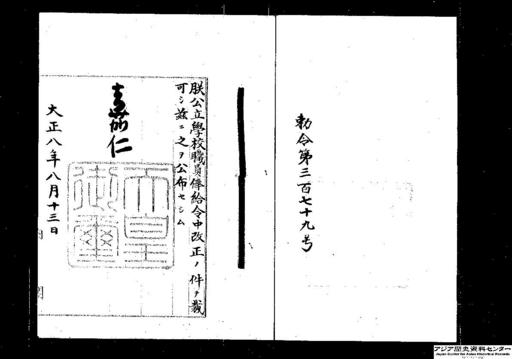 勅令第三百七十九号
朕公立學校職員俸給令中改正ノ件ヲ裁
可シ茲ニ之ヲ公布セシム
嘉仁
天皇御璽
大正八年八月十三日
内
アジア歴史資料センター
Japan Center for Asian Historical Records